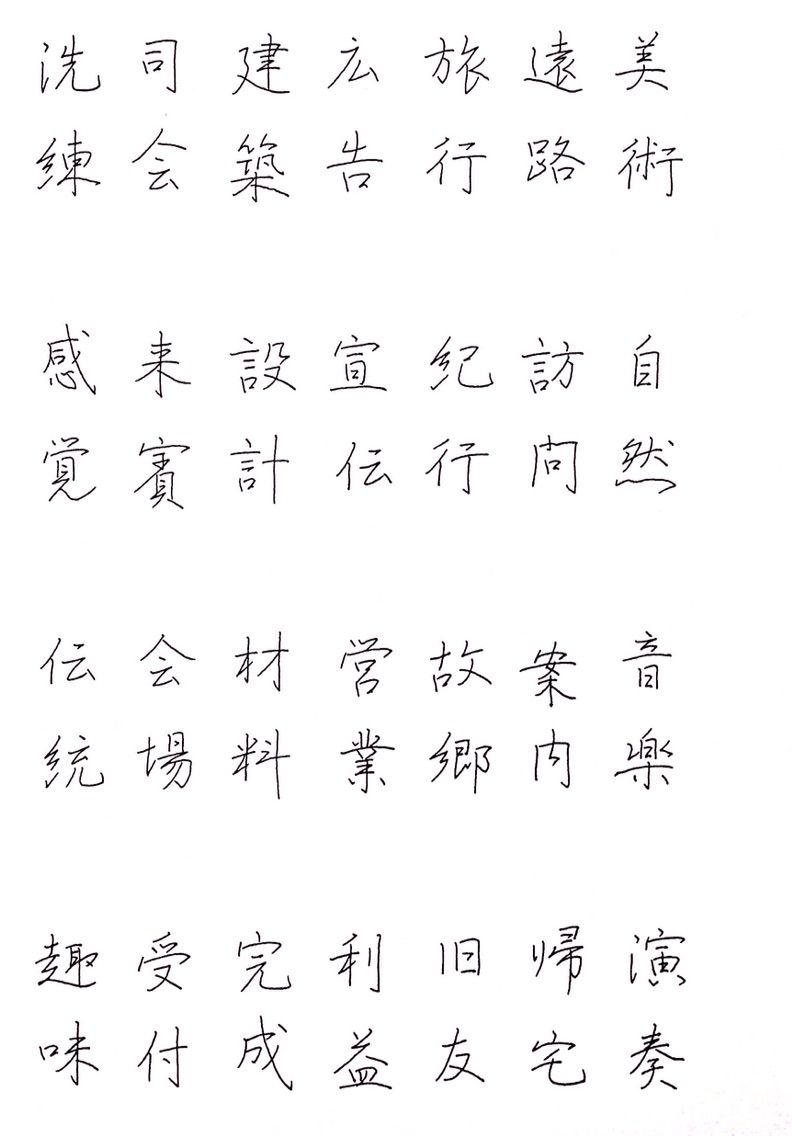 美術 自然 音楽 演奏
遠路 訪問 案内 帰宅
旅行 紀行 故郷 旧友
広告 宣伝 営業 利益
建築 設計 材料 完成
司会 来賓 会場 受付
洗練 感覚 伝統 趣味